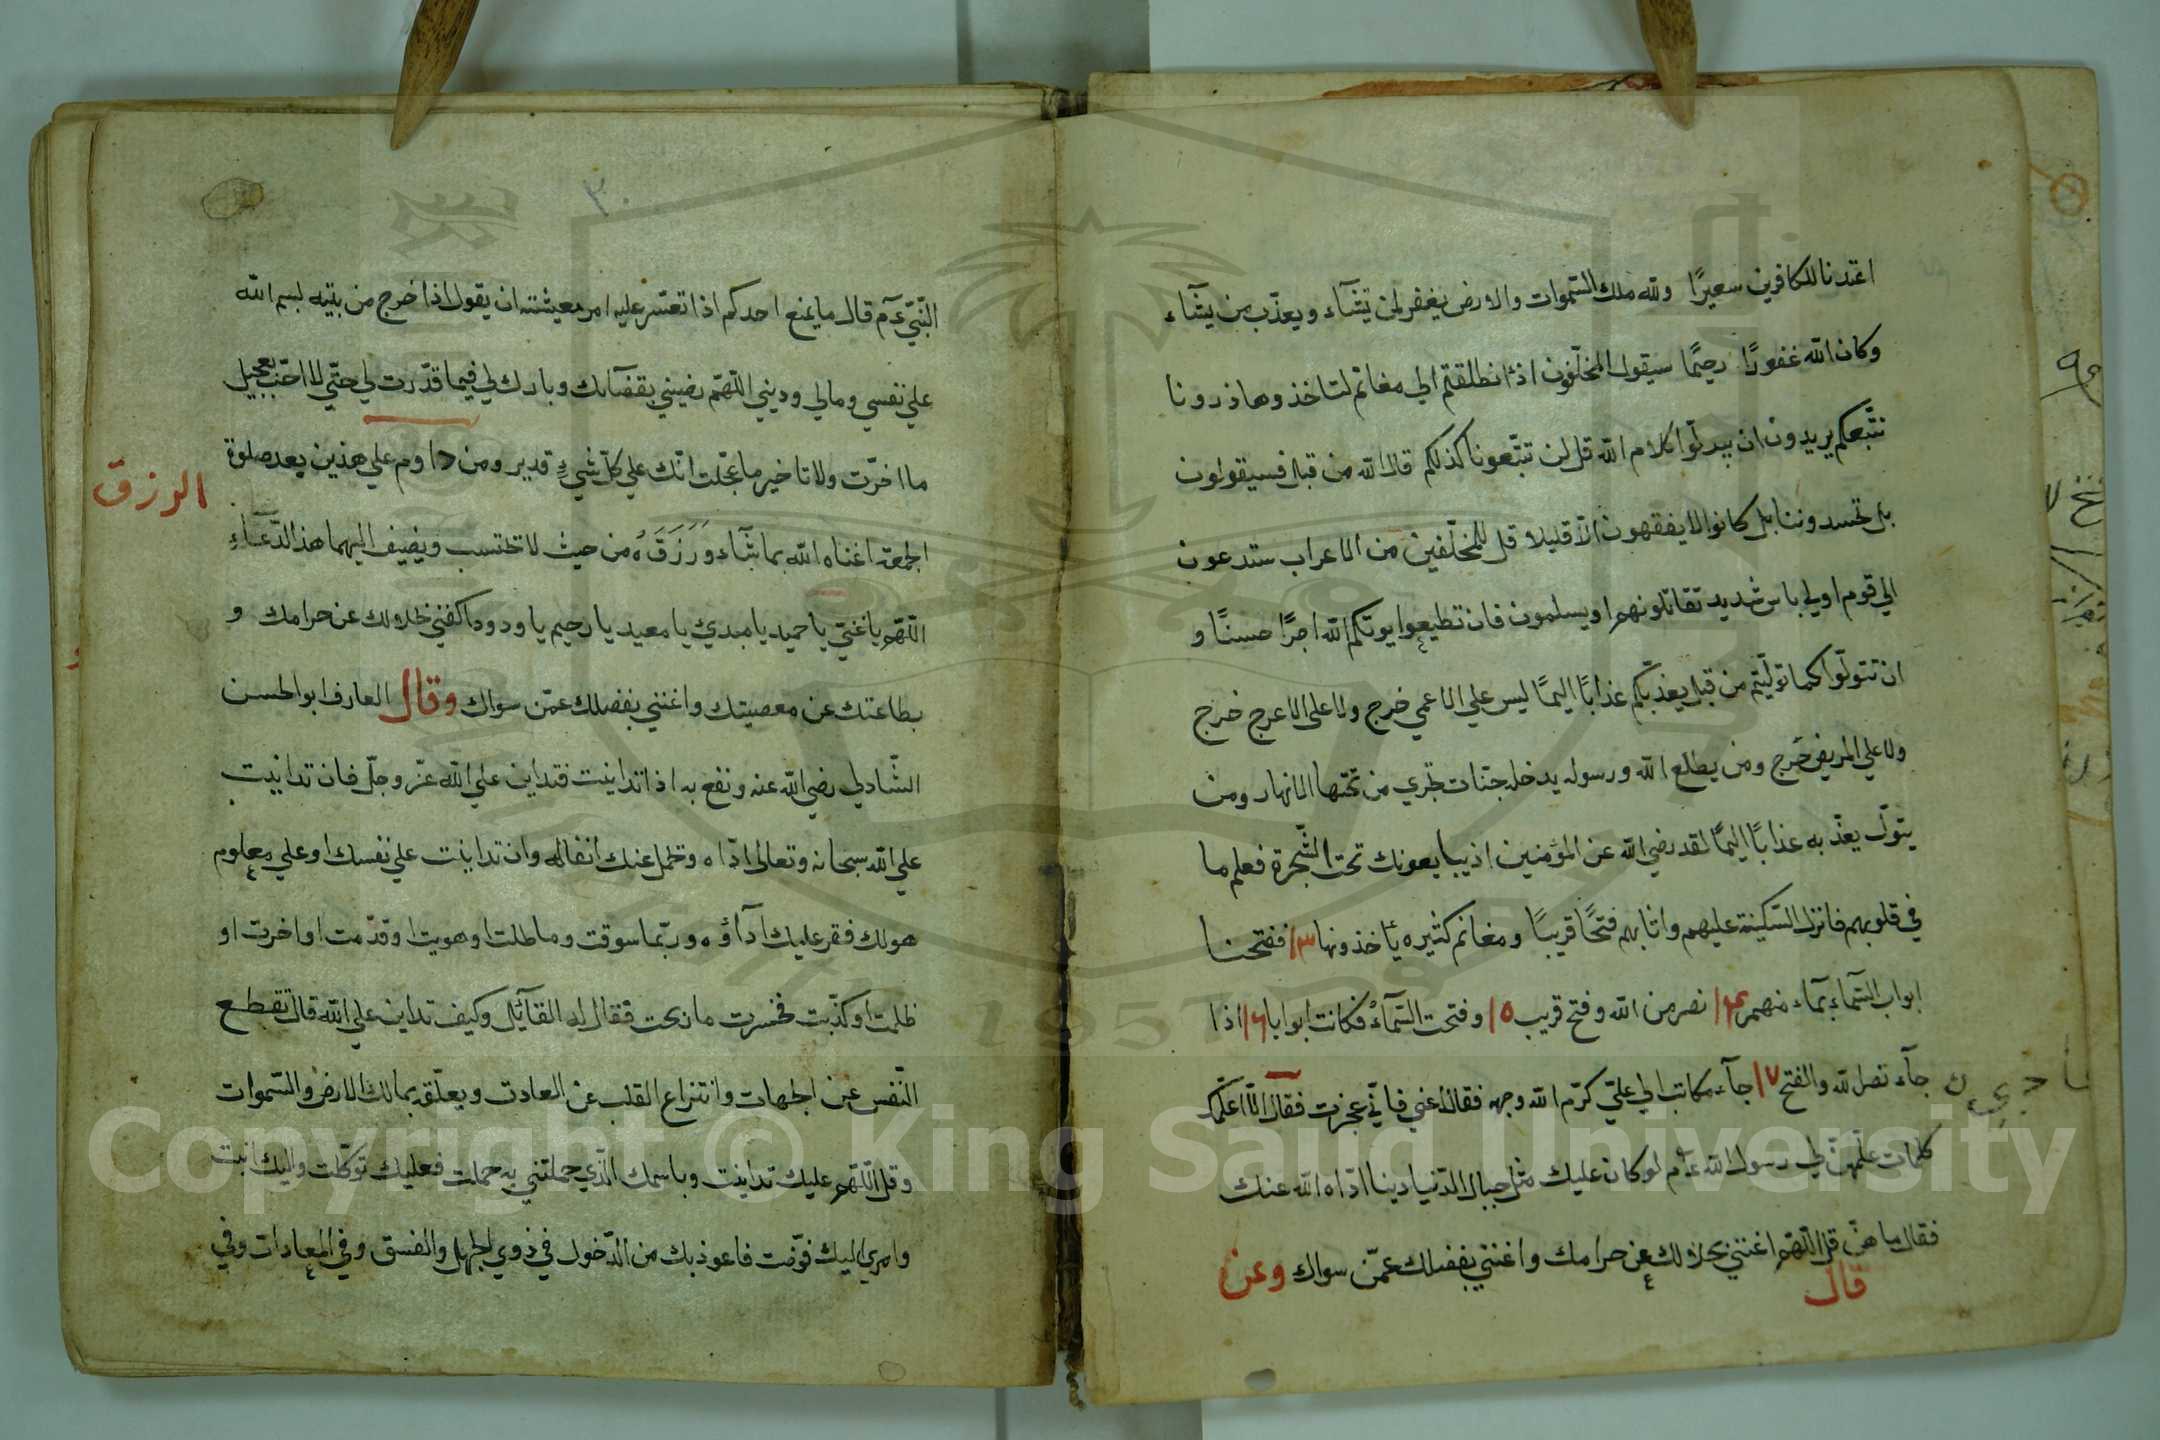 اعتدنا للكافرين سعيرًا ولله ملك السّموات والارض يغفر لمن يشآء ويعذّب من يشآء
وكان الله غفورًا رحيمًا سيقول المخلّفون اذا انطلقتم الي مغانم لتاخذوها ذرونا
نتّبعكم يريدون ان يبدلّوا كلام الله قل لن تتّبعونا كذلكم قال الله من قبل فسيقولون
بل تحسدوننا بل كانوا لا يفقهون الّا قليلا قل للمخلّفين من الاعراب ستدعون
الي قوم اولي باس شديد تقاتلونهم او يسلمون فان تطيعوا يوتكم الله اجرًا حسنًا و
ان تتولّوا كما تولّيتم من قبل يعذبكم عذابًا اليمًا ليس علي الاعمي حرج ولا علي الاعرج حرج
ولا علي المريض حرج ومن يطع الله ورسوله يدخله جنّات تجري من تحتها الانهار ومن
يتولّ يعذّبه عذابًا اليمًا لقد رضي الله عن المؤمنين اذ يبايعونك تحت الشّجرة فعلم ما
في قلوبهم فانزل السّكينة عليهم واثابهم فتحًا قريبًا ومغانم كثيره يأخذونها ١٣ ففتحنا
ابواب السّمآء بمآء منهمر ١٤ نصر من الله وفتح قريب ١٥ وفتحت السّمآء فكانت ابوابا ١٦ اذا
جآء نصر الله والفتح ١٧ جآء مكاتب الي عليّ كرّم الله وجهه فقال اعني فانّي عجزت فقال الا اعلّمك
كلمات علّمهنّ لي رسول الله عم لو كان عليك مثل جبال الدّنيا دينا ادّاه الله عنك
فقال ما هنّ قال قل اللّهم اغنني بحلالك عن حرامك واغنني بفضلك عمّن سواك وعن
٣٠
النّبيّ عم قال ما يمنع احدكم اذا تعسّر عليه امر معيشته ان يقول اذا خرج من بيته بسم الله
علي نفسي ومالي وديني اللّهم رضيني بقضآئك وبارك لي فيما قدّرت لي حتّي لا احبّ تعجيل
ما اخّرت ولا تاخير ما عجّلت انّك علي كلّ شيء قدير ومن داوم علي هذين بعد صلوة
الرزق
الجمعة اغناه الله بما شآء ورزقه من حيث لا تحتسب ويضيف اليهما هذا الدّعآء
اللّهم يا غنيّ يا حميد يا مبديئ يا معيد يا رحيم يا ودود اكفني بحلالك عن حرامك و
بطاعتك عن معصيتك واغنني بفضلك عمّن سواك وقال العارف ابو الحسن
الشّادلي رضي الله عنه ونفع به اذا تداينت فتداين علي الله عزّ وجلّ فان تداينت
علي الله سبحانه وتعالي ادّاه وتحمل عنك اثقاله وان تداينت علي نفسك او علي معلوم
هو لك فقر عليك ادآؤه وربّما سوقت وماطلت او هويت او قدّمت او اخرت او
ظلمت او كذّبت فخسرت ما ربحت فقال له القآئل وكيف تداين علي الله قال تقطع
النّفس عن الجهات وانتزاع القلب عن العادت ويعلّقه بمالك الارض والسّموات
وقل اللّهم عليك تداينت وباسمك الّذي حملتني به حملت فعليك توكّلت واليك انبت
وامري اليك فوّضت فاعوذ بك من الدّخول في ذوي الجهل والفسق وفي المعادات وفي
Copyright © King Saud University
1957